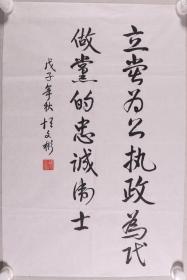 立党为公执政為民
做黨的忠诚衛士
戊子年秋 任文彬